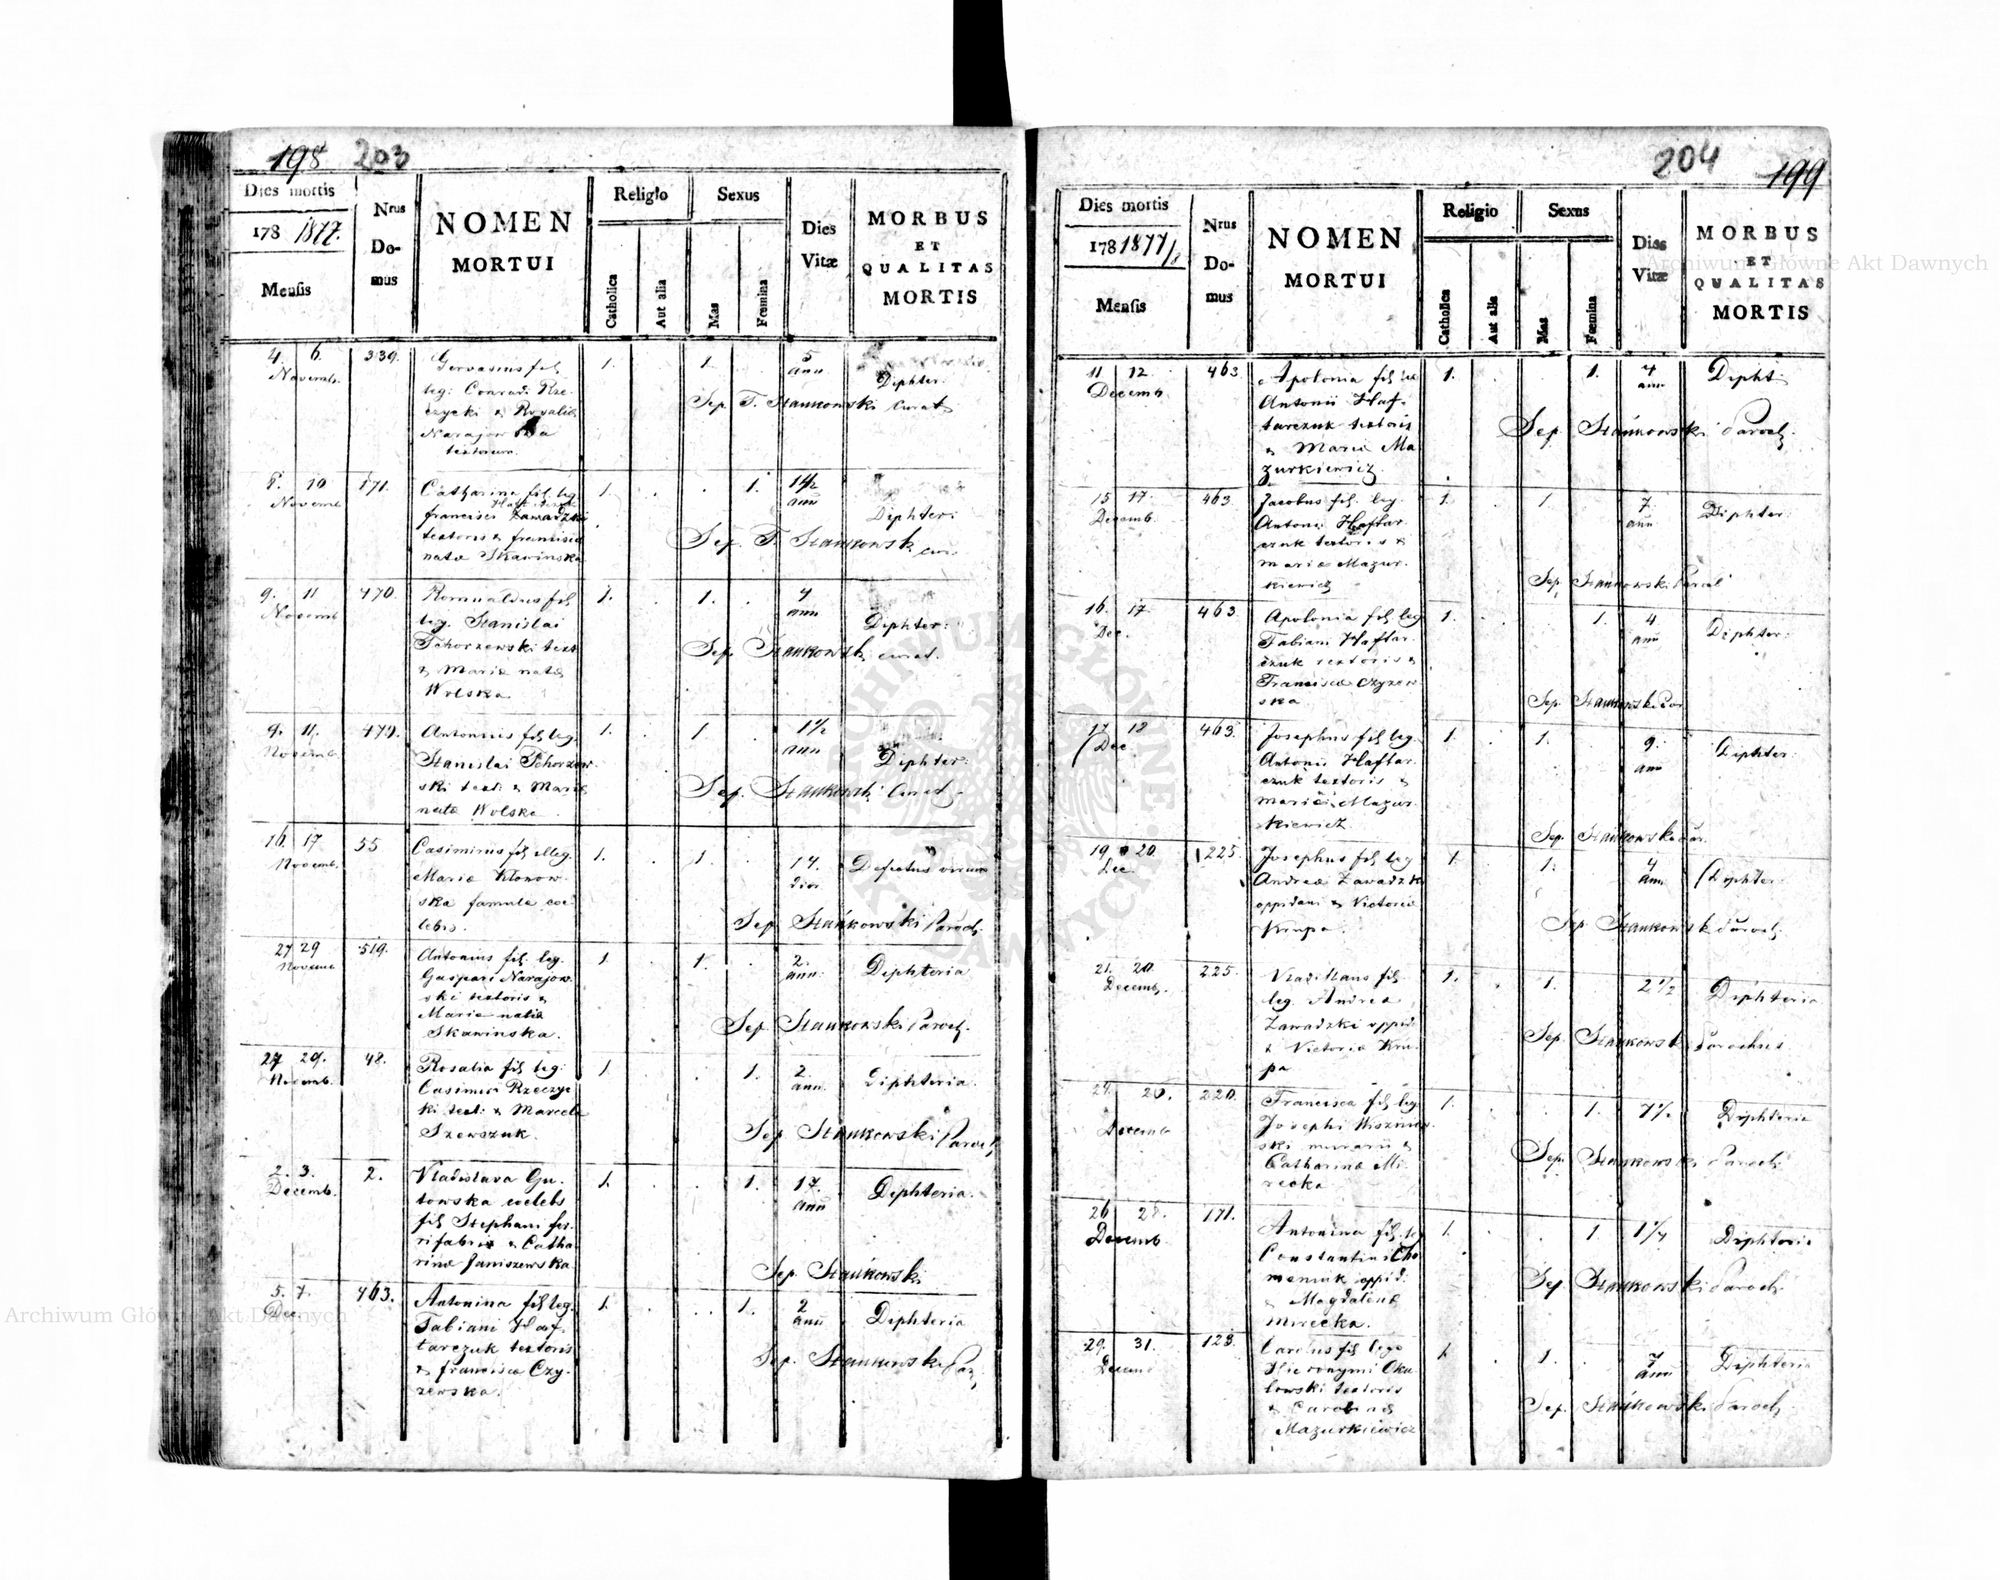 198 203
Dies mortis
178 1877.
Mensis
Nrus
Do-
mus
NOMEN
MORTUI
Religio
Catholica
Aut alia
Sexus
Mas
Fœmina
Dies
Vitæ
MORBUS
ET
QUALITAS
MORTIS
4. 6. 339. Gervasius fil. 1. 1. 5
Novemb. leg: Conradi Rze- ann Diphter:
czycki & Rosaliæ Sep. F. Stankowski Curat.
Narajowska
textorum
8. 10 171. Catharina fil. leg. 1. 1. 1 1/2
Novemb francisci Zawadzki ann Diphter:
textoris & franciscæ Sep. F. Stankowski
natæ Skawinska
9. 11 470. Romualdus fil 1. 1. 4
Novemb leg. Stanislai ann Diphter:
Tchorzewski text Sep. Stankowski curat.
& Mariæ natæ
Wolska
9. 11. 470. Antonius fil leg. 1. 1. 1 1/2
Novemb Stanislai Tchorzew ann Diphter:
ski text: & Mariæ Sep. Stankowski Curat.
natæ Wolska
16. 17 55 Casimirus fil illeg. 1. 1. 17.
Novemb. Mariæ Klonow- dier. Defectus virium
ska famula cœ-
lebs. Sep. Stańkowski Paroch.
27 29 519. Antonius fil. leg. 1. 1. 2.
Novemb Gaspari Narajow- ann. Diphteria
ski textoris &
Mariæ natæ Sep. Stankowski Paroch.
Skawinska.
27 29. 48. Rosalia fil. leg: 1 1. 2.
Novemb. Casimiri Rzeczyc- ann. Diphteria.
ki text: & Marcella
Szewszuk. Sep Stankowski Paroch
2. 3. 2. Vladislava Gu- 1. 1. 17.
Decemb. towska cœlebs ann Diphteria.
fil Stephani fer-
rifabri & Catha-
rinæ Janiszewska. Sep. Stańkowski
5. 7. 463. Antonina fil leg. 1. 1. 2
Dec Fabiani Haf- ann Diphteria
tarczuk textoris
& francisca Czy- Sep. Stankowski Par,
żewska.
204 199
Dies mortis
178 1877/8
Mensis
Nrus
Do-
mus
NOMEN
MORTUI
Religio
Catholica
Aut alia
Sexus
Mas
Fœmina
Dies
Vitæ
MORBUS
ET
QUALITAS
MORTIS
11 12 463. Apolonia fil. 1. 1. 4
Decemb Antonii Haf- ann Dipht:
tarczuk textoris
& Mariæ Ma Sep. Stańkowski Paroch.
zurkiewicz.
15 17. 463. Jacobus fil. leg. 1. 1 7.
Decemb. Antonii Haftar ann Diphter:
czuk textoris &
Mariæ Mazur-
kiewicz Sep. Stankowski
16. 17. 463. Apolonia fil leg 1. 1. 4
Dec. Fabiani Haftar- ann Diphter:
czuk textoris &
Francisca Czyzew
ska Sep. Stankowski Par
17 18 463. Josephus fil leg. 1. 1. 9.
Dec. Antonii Haftar- ann Diphter:
czuk textoris &
Mariæ Mazur-
kiewicz. Sep. Stańkowski Par.
19 20. 225. Josephus fil leg 1. 1. 4
Dec. Andreæ Zawadzki ann Diphter.
oppidani & Victoriæ
Krupa. Sep. Stankowski Paroch.
21. 20. 225. fil. 1. 1. 2 1/2
Decemb. leg. Andrea Diphteria
Zawadzki oppid:
& Victoriæ Kru- Sep. Stankowski Parochus.
pa
20. 220. Francisca fil leg. 1. 1. 7 1/2
Decemb Josephi Wiszniew- Diphteria
ski murarii &
Catharinæ Mi- Sep. Stankowski Paroch
recka
26 28. 171. Antonina fil. leg 1. 1. 1 1/4
Decemb. Constantini Cho Diphteria
meniuk oppid:
& Magdalenæ Sep Stankowski Paroch.
Mirecka.
29. 31. 123. Carolus fil lege 1. 1. 7
Decemb Hieronymi Oku ann Diphteria
lowski textoris
& Carolinæ Sep. Stańkowski Paroch
Mazurkiewicz
Archiwum Główne Akt Dawnych
Archiwum Główne Akt Dawnych
ARCHIWUM GŁÓWNE AKT DAWNYCH